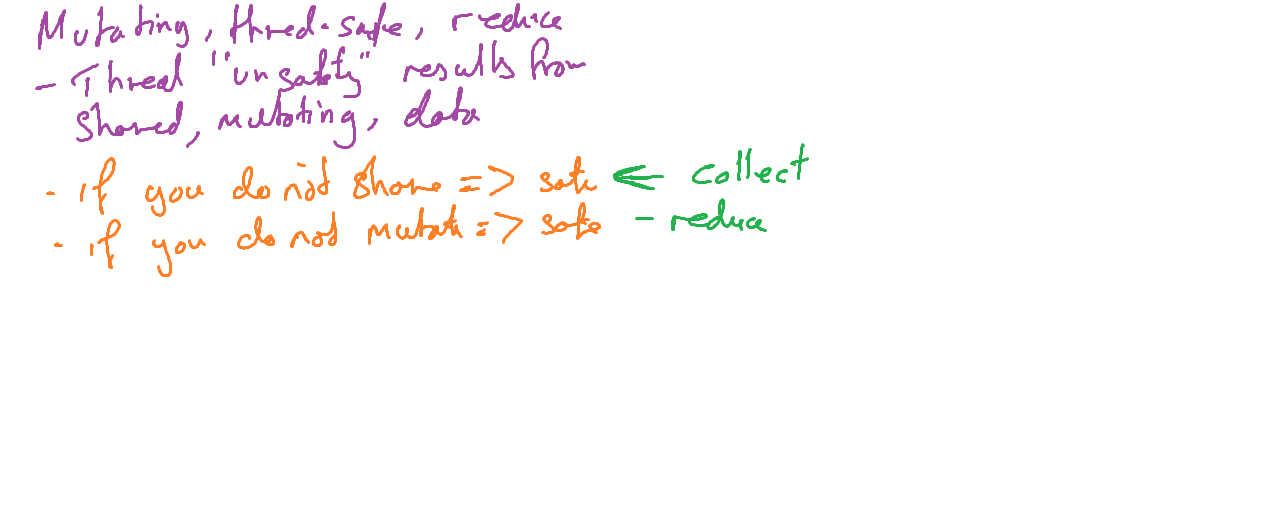 Mutating, thred-safe, reduce
- Thread "unsafety" results from
shared, mutating, data
- if you do not share => safe <= collect
- if you do not mutate => safe - reduce